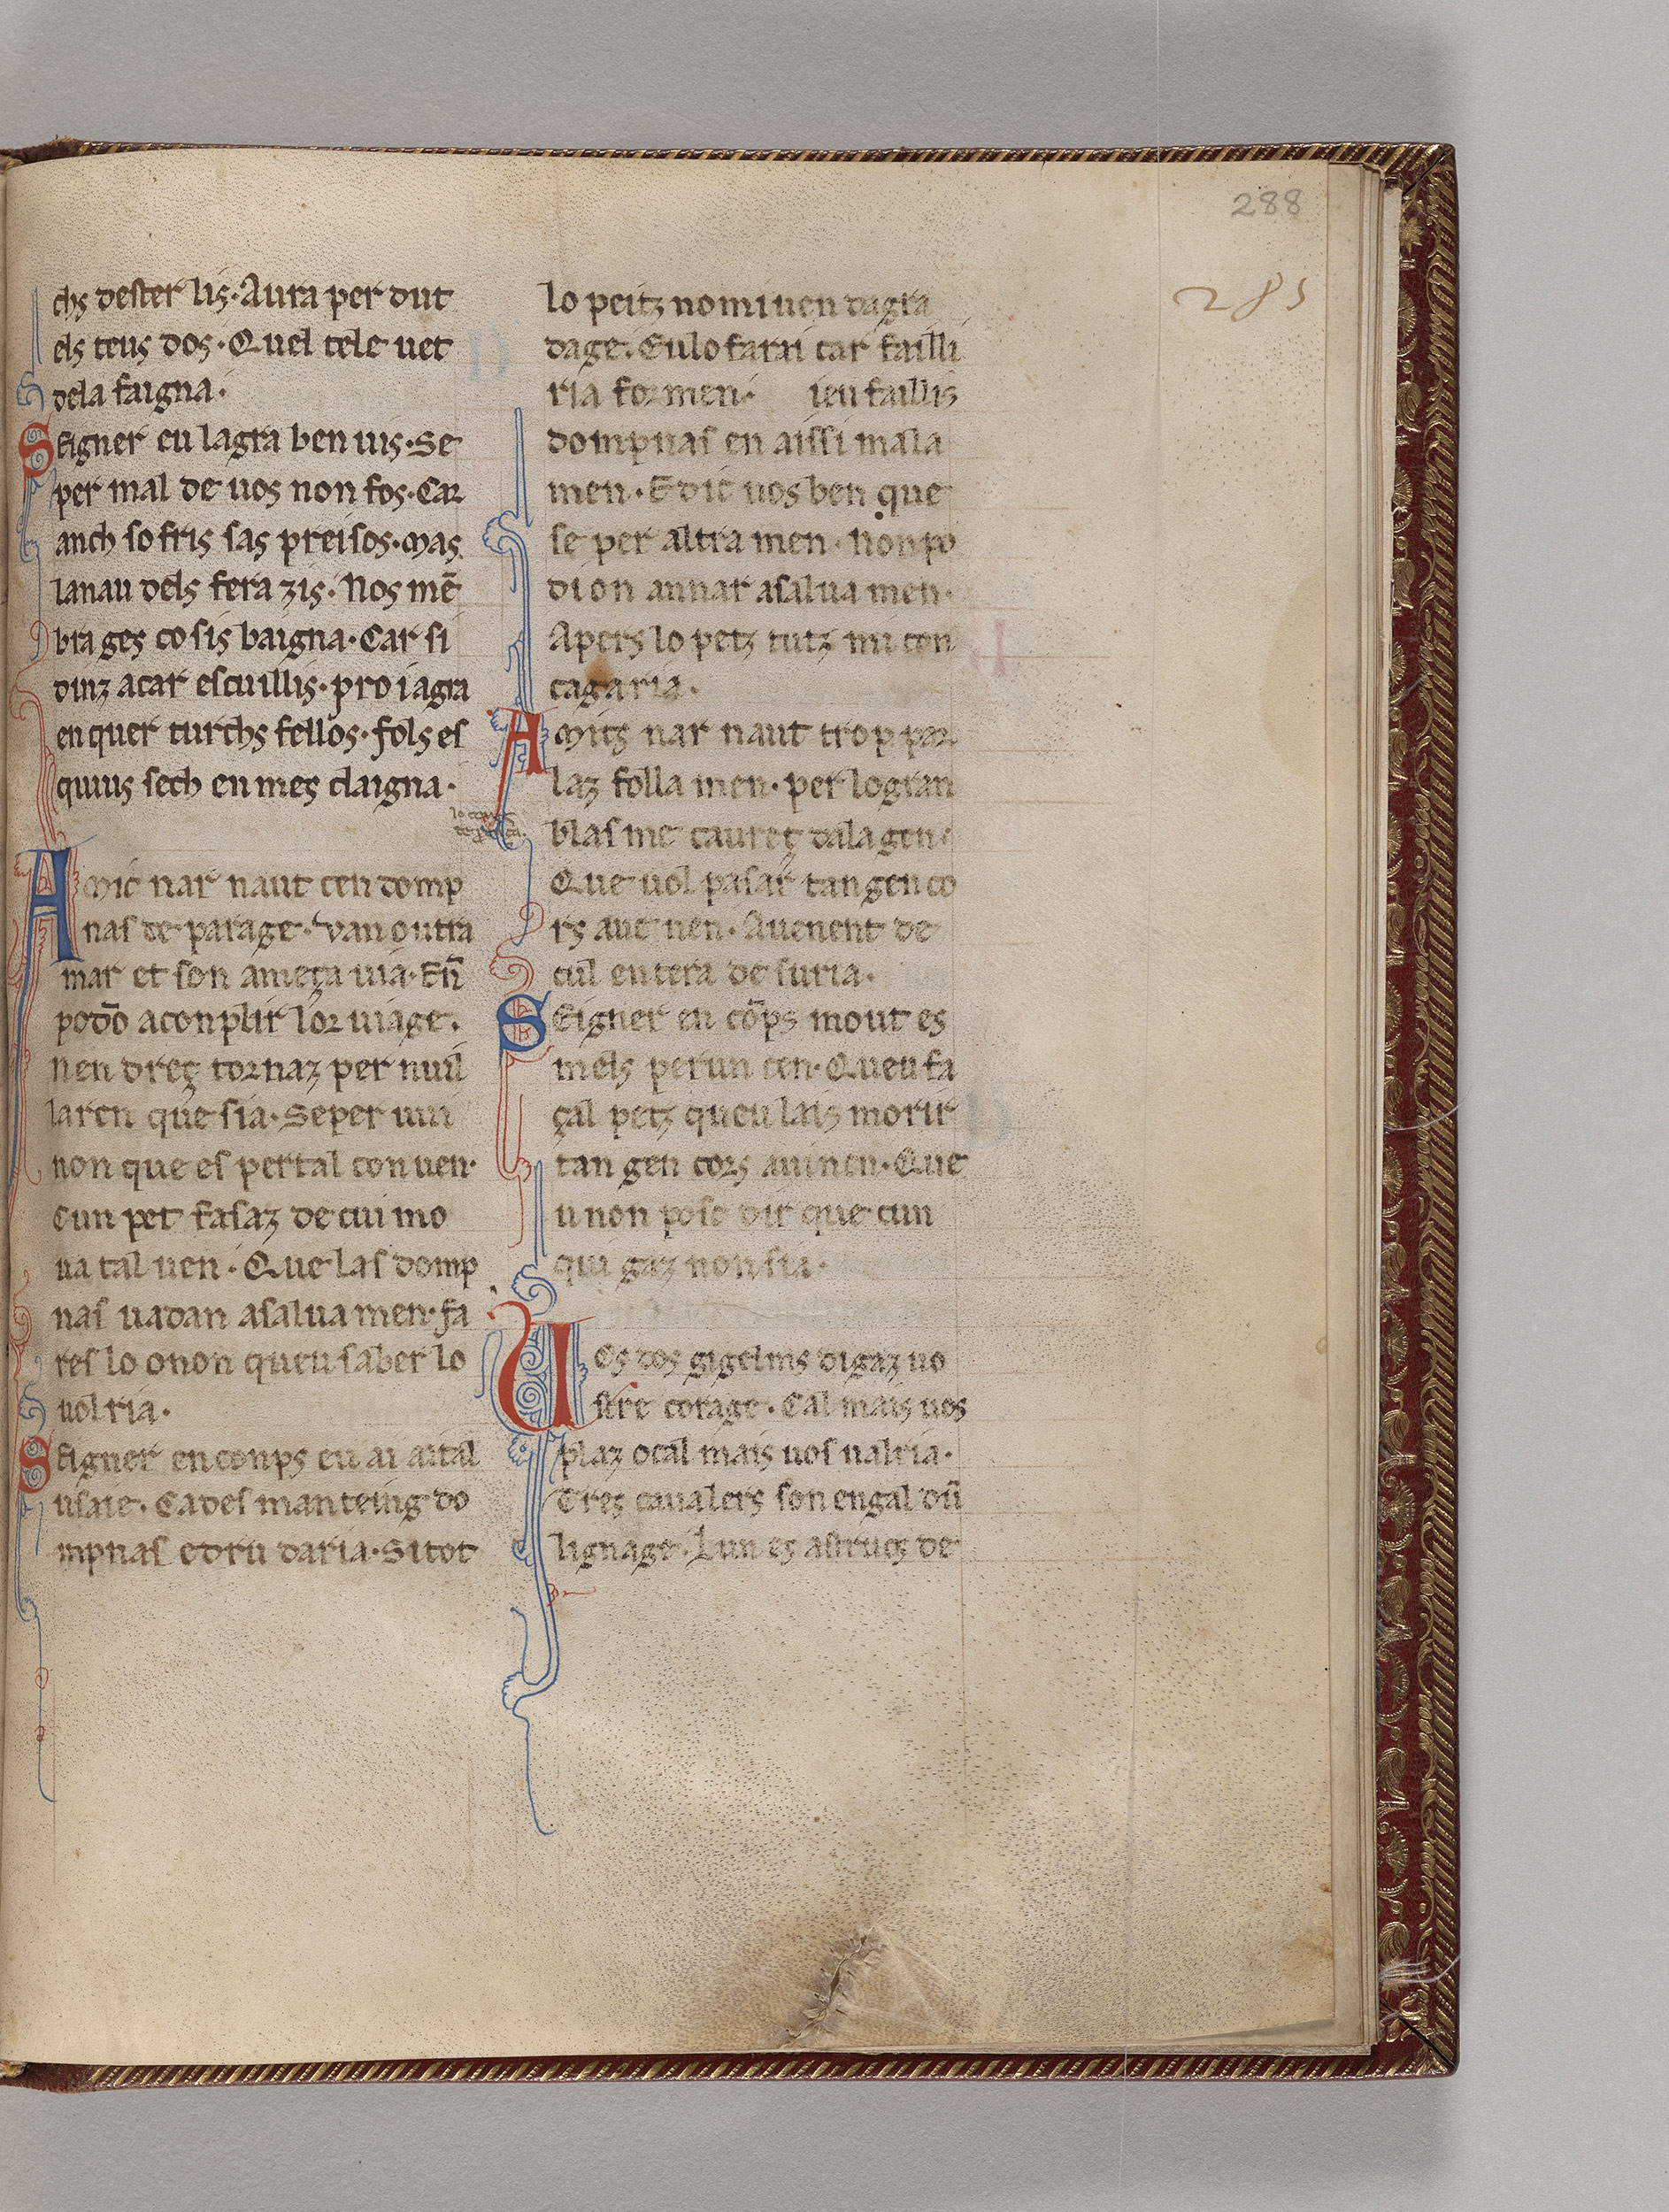 288
285
chs dester lis·Aura per dut
els teus dos·Quel tele uet
dela faigna·
SEigner eu lagra ben uis·Se
per mal de uos non fos·Car
anch sofris sas preisos·Mas
lanau dels fera zis·Nos mē
bra ges co sis baigna·Car si
dinz acar escuillis·pro iagra
en quer turchs fellos·fols es
quius sech en mes claigna·
AMic nar naut cen domp
nas de parage·Van outra
mar et son ameça uia·En̄
podō aconplir lor uiage·
nen dreç tornaz per nuil
laren que sia·Se per uui
non que es per tal conuen·
Cun pet fasaz de cui mo
ua tal uen·Que las domp
nas uadan asalua men·fa
res lo onon queu saber lo
uolria·
SEigner en conps eu ai aital
usaie·Cades manteing do
mpnas edru daria·Si tot
lo peitz nomi uen dagra
dage·Eulo farai car failli
ria formen· ieu faillis
dompnas en aissi mala
men·E dic uos ben que
se per altra men·Non po
dion annar asalua men·
Apers lo petz tutz mi con
cagaria·
AMics nar naut trop par
laz folla men·per lo gran
blasme caureç dala gen·
Que uol pasar tan gen co
rs aue nen·Auenent de
cul en tera de suria·
SEigner en cōps mout es
mels per un cen·Queu fa
çal petz queu lais morir
tan gen cors auinen·Que
u non posc dir que cun
qui gaz non sia·
UEs dos gigelms digaz uo
stre corage·Cal mais uos
plaz ocal mais uos ualria·
Tres caualers son engal dū
lignage·Lun es astrucs de